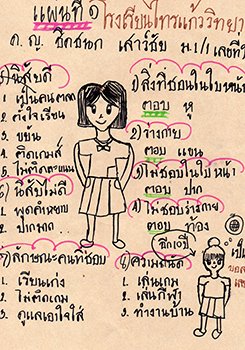 แผนที่ ๑
โรงเรียนไทรแก้ววิทยา
ด.ญ. ธิดชนก เสาร์ชัย ม.1/1 เลขที่
1) นิสัยดี
1. เป็นคนตลก
2. ตั้งใจเรียน
3. ขยัน
4. ติดเกมส์
5. ไม่ติดคะแนน
6) นิสัยไม่ดี
1. พูดคำหยาบ
2. ปากมาก
7) ลักษณะคนที่ชอบ
1. เรียนเก่ง
2. ไม่ติดเกม
3. ดูแลเอาใจใส่
2) สิ่งที่ชอบในใบหน้า
ตอบ หู
3) ร่างกาย
ตอบ แขน
ไม่ชอบในใบหน้า
ตอบ ปาก
ไม่ชอบร่างกาย
ตอบ ท้อง
8) ความถนัด
1. เล่นเกม
2. เล่นกีฬา
3. ทำงานบ้าน
อีก 10 ปี
เป็น